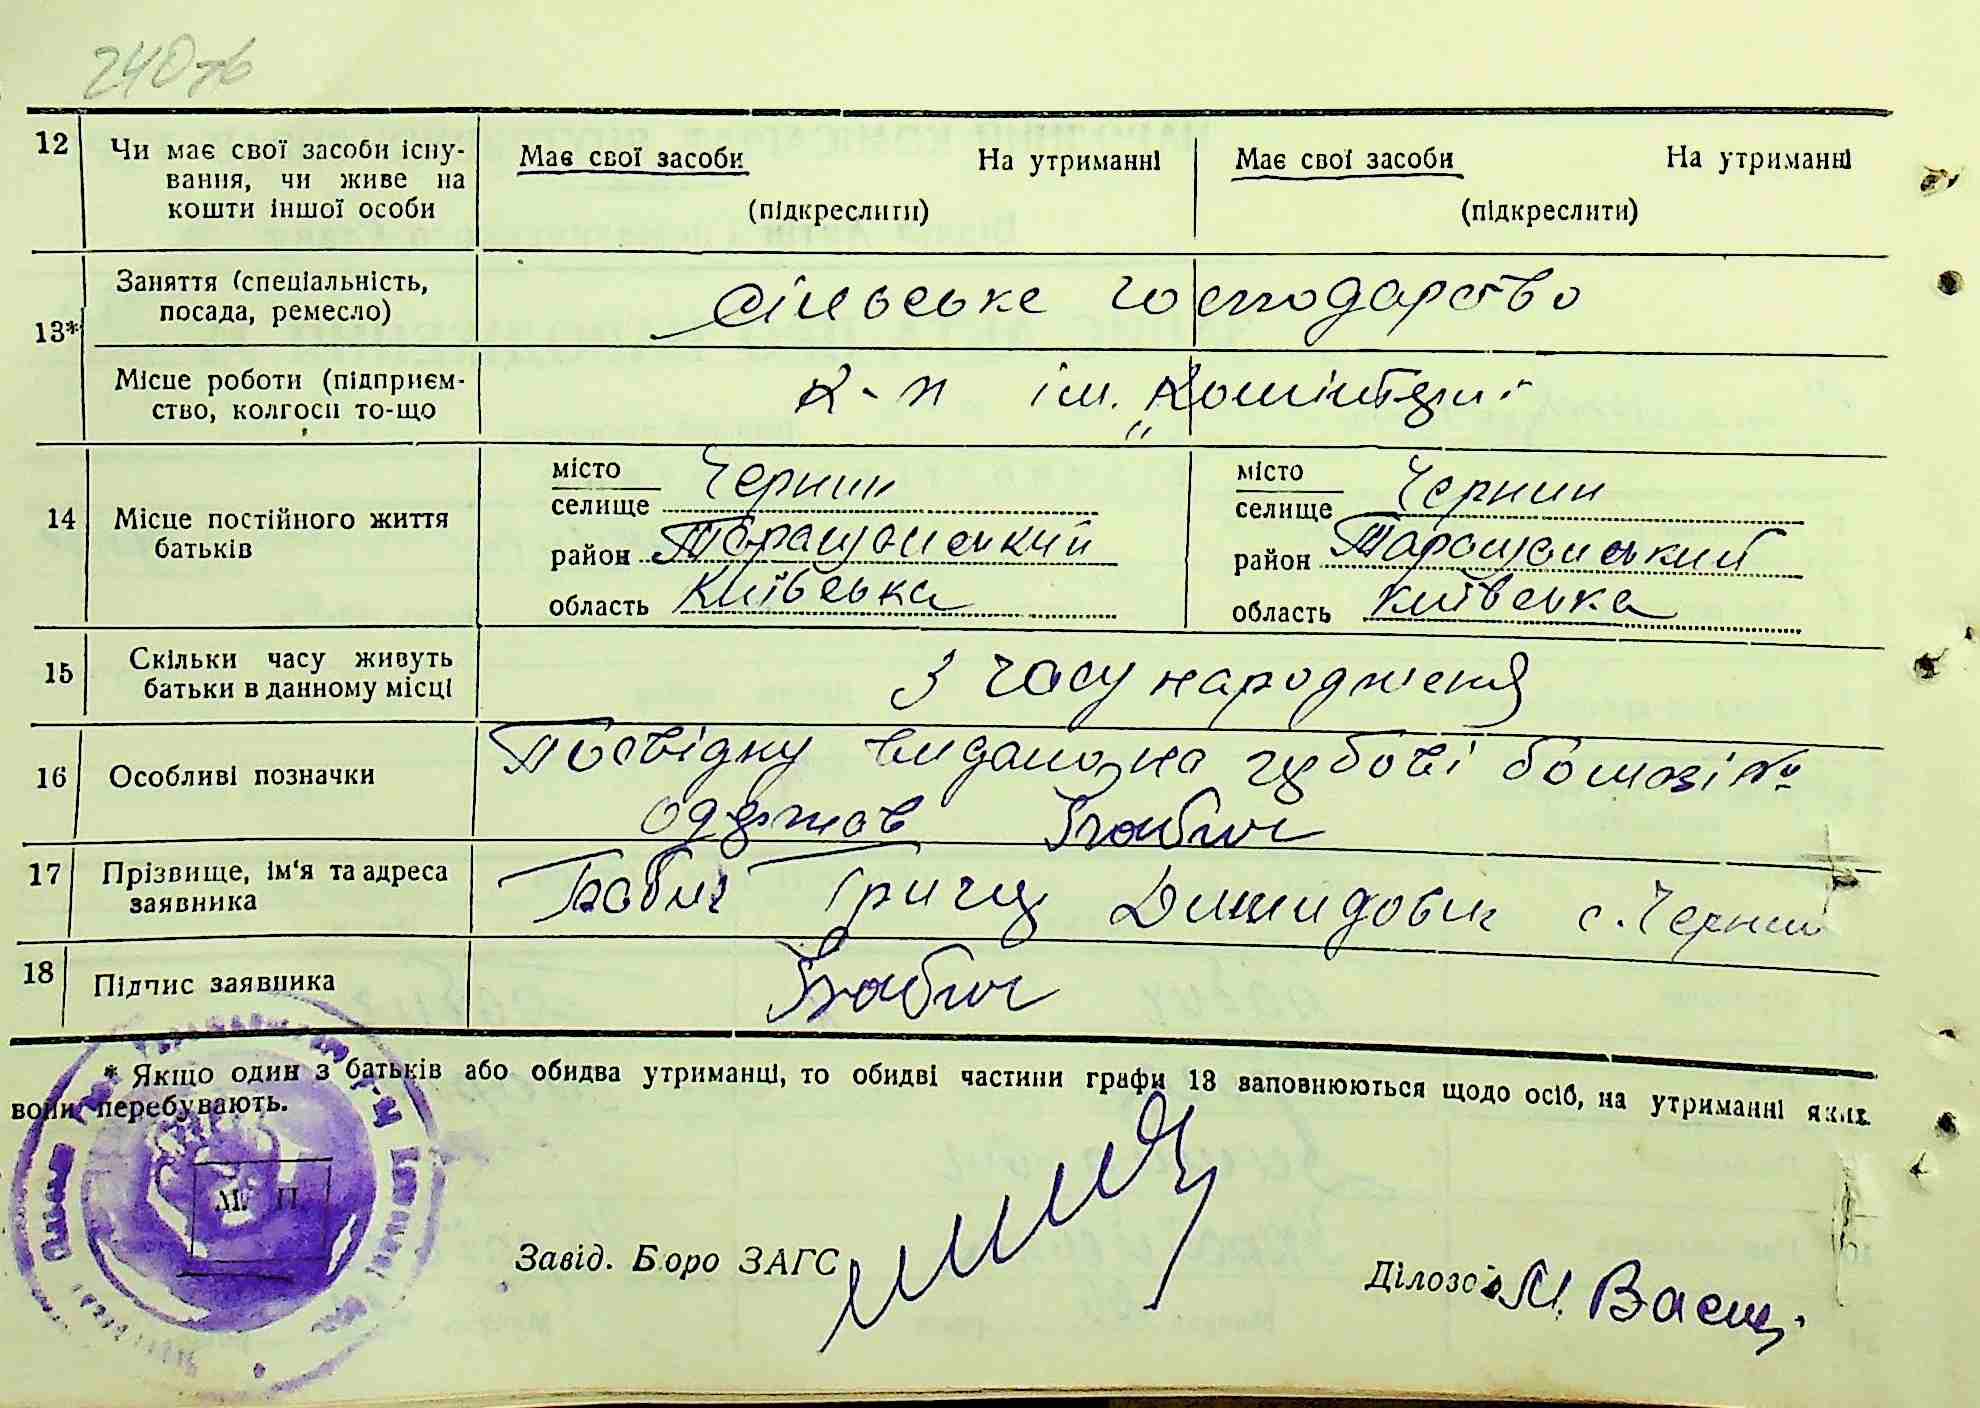 240 зв
12 Чи має свої засоби існу-
вання, чи живе на
кошти іншої особи
Має свої засоби На утриманні
(підкреслити)
Має свої засоби На утриманні
(підкреслити)
13* Заняття (спеціальність,
посада, ремесло)
сільське господарство
Місце роботи (підприєм-
ство, колгосп то-що
к-п ім. "Комінтерн
14 Місце постійного життя
батьків
місто
селище Чернин
район Таращанський
область Київська
місто
селище Чернин
район Таращанський
область Київська
15 Скільки часу живуть
батьки в данному місці
З часу народження
16 Особливі позначки
Посвідку видано на гербові бомазі №
одержав Бабич
17 Прізвище, ім'я та адреса
заявника
Бабич Григор Демидович с. Чернин
18 Підпис заявника
Бабич
* Якщо один з батьків або обидва утриманці, то обидві частини графи 13 заповнюються щодо осіб, на утриманні яких
вони перебувають.
М. П.
Завід. Бюро ЗАГС
Діловод М. Ващ.